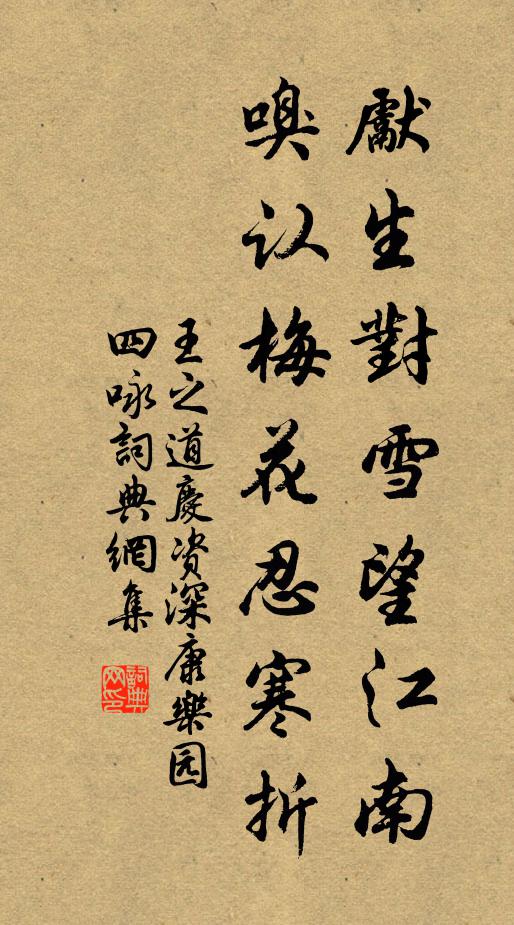 獻生對雪望江南
嗅认梅花忍寒折
王之道慶资深康樂园
四咏詞典網集
詞典网印